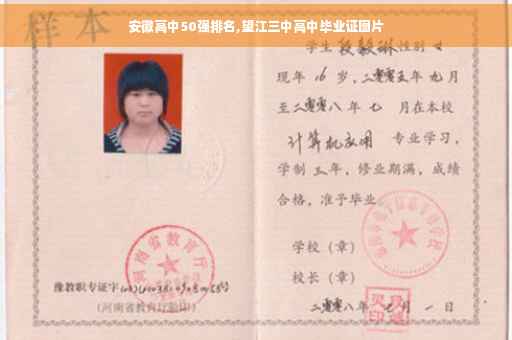 安徽高中50强排名,望江三中高中毕业证图片
样本
学生段毅琳性别女
现年16岁，二零零五年九月
至二零零八年七 月在本校
计算机应用 专业学习，
学制三年，修业期满，成绩
合格，准予毕业
学校（章）
校长（章）
二零零八年七月一日
河南省教育厅
豫教职专证字
(河南省教育厅验印)